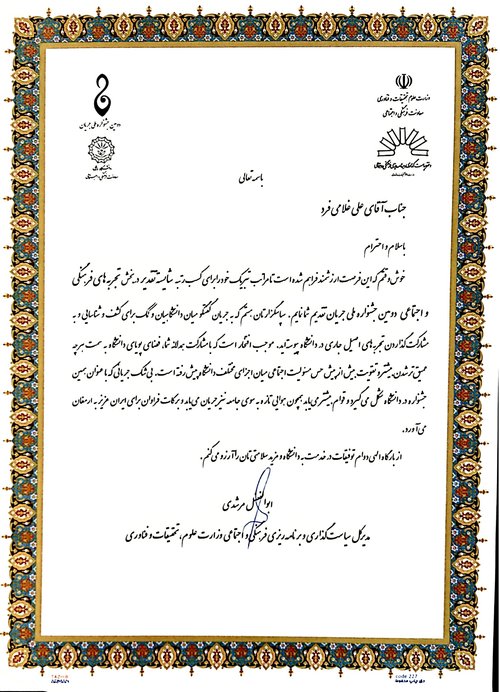 وزارت علوم، تحقیقات و فناوری
معاونت فرهنگی و اجتماعی
دومین جشنواره ملی جریان
باسمه تعالی
جناب آقای علی غلامی فرد
باسلام و احترام
خوش وقتم که این فرصت ارزشمند فراهم شده است تا مراتب تبریک خود را برای کسب رتبه شایسته تقدیر در بخش تجربه های فرهنگی
و اجتماعی دومین جشنواره ملی جریان تقدیم شما نمایم. سپاسگزارتان هستم که به جریان گفتگو میان دانشگاهیان و برای کشف و شناسایی و به
مشارکت گذاردن تجربه های اصیل جاری در دانشگاه پیوسته‌اید. موجب افتخار است که با مشارکت همدلانه شما، فضای پویای دانشگاه به سمت هرچه
عمیق تر شدن، بیشتر و تقویت بیش از پیش حس مسئولیت اجتماعی میان اجزای مختلف دانشگاه پیش رفته است. بی شک جریانی که با عنوان همین
جشنواره در دانشگاه شکل می گیرد و قوام بیشتری یابد همچون هوایی تازه به سوی جامعه نیز جریان می یابد و برکات فراوان برای ایران عزیز به ارمغان
می آورد.
از بارگاه الهی دوام توفیقات در خدمت به دانشگاه و مزید سلامتی تان را آرزو می کنم.
ابوالفضل مرشدی
مدیرکل سیاست گذاری و برنامه ریزی فرهنگی و اجتماعی وزارت علوم، تحقیقات و فناوری
code 227